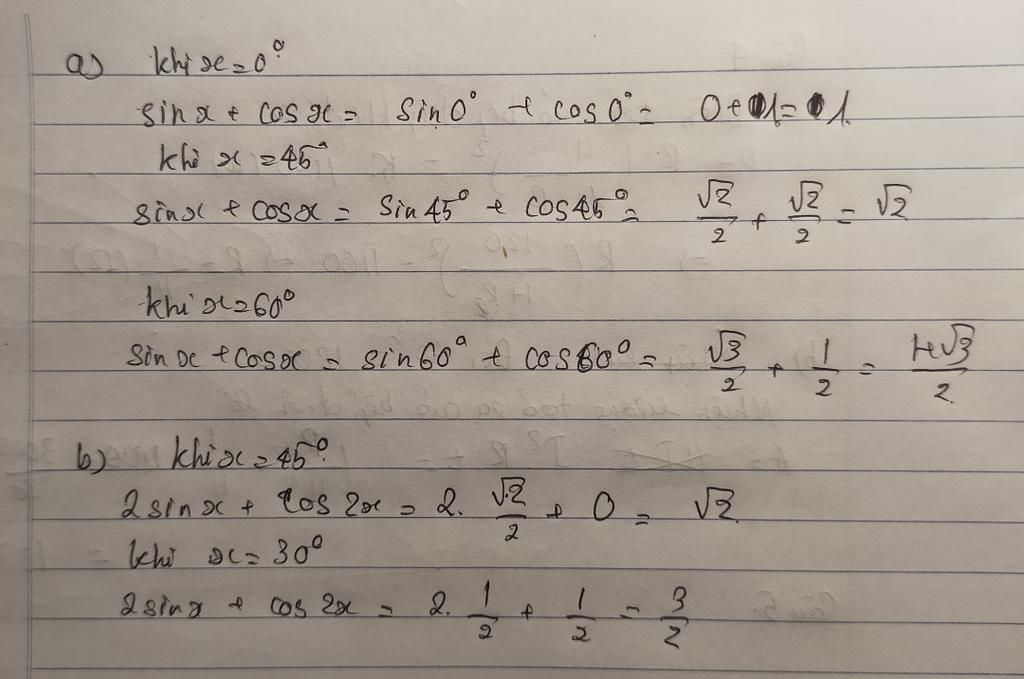 a) khi x = 0°
sin x + cos x = sin 0° + cos 0° = 0 + 1 = 1.
khi x = 45°
sin x + cos x = sin 45° + cos 45° = √2/2 + √2/2 = √2
khi x = 60°
sin x + cos x = sin 60° + cos 60° = √3/2 + 1/2 = 1+√3/2.
b) khi x = 45°.
2 sin x + cos 2x = 2. √2/2 + 0 = √2.
khi x = 30°
2 sin x + cos 2x = 2. 1/2 + 1/2 = 3/2